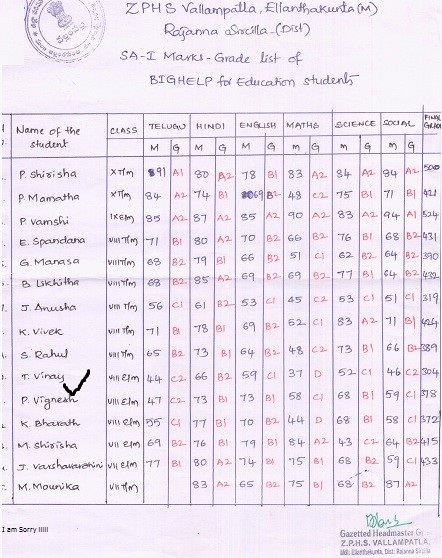 ZPHS Vallampatla, Ellanthakunta(M)
Rajanna Sircilla-(Dist)
SA-I Marks-Grade list of
BIGHELP for Education students
Name of the student CLASS TELUGU HINDI ENGLISH MATHS SCIENCE SOCIAL FINAL GRADE
M G M G M G M G M G M G
P. Shirisha X T/m 91 A1 80 A2 78 B1 83 A2 84 A2 84 A2 500
P. Mamatha X T/m 84 A2 74 B1 69 B2 48 C2 75 B1 71 B1 421
P. Vamshi IX E/m 85 A2 87 A2 85 A2 90 A2 83 A2 94 A1 524
E. Spandana VIII T/m 71 B1 80 A2 70 B2 66 B2 76 B1 68 B2 431
G. Manasa VIII T/m 68 B2 79 B1 66 B2 51 C1 62 B2 64 B2 390
B. Likhitha VIII T/m 68 B2 85 A2 69 B2 69 B2 77 B1 64 B2 432
J. Anusha VIII T/m 56 C1 61 B2 53 C1 45 C2 53 C1 51 C1 319
K. Vivek VIII T/m 71 B1 78 B1 69 B2 52 C1 83 A2 71 B1 424
S. Rahul VIII T/m 65 B2 73 B1 64 B2 48 C2 73 B1 66 B2 389
T. Vinay VIII E/m 44 C2 66 B2 59 C1 37 D 52 C1 46 C2 304
P. Vignesh VIII E/m 47 C2 73 B1 73 B1 58 C1 68 B1 59 C1 378
K. Bharath VII E/m 55 C1 77 B1 70 B2 44 D 68 B1 58 C1 372
M. Shirisha VII E/m 69 B2 76 B1 79 B1 84 A2 43 C2 64 B2 415
J. Varshavarshini VII E/m 77 B1 80 A2 74 B1 75 B1 68 B2 59 C1 433
M. Mounika VII T/m 83 A2 65 B2 75 B1 68 B2 87 A2
I am Sorry IIIII
Gazetted Headmaster
Z.P.H.S. VALLAMPATLA,
Mdl: Ellanthakunta, Dist: Rajanna Sircilla